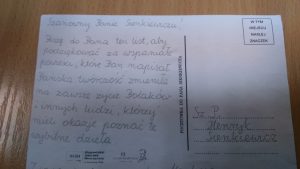 Szanowny Panie Sienkiewiczu!
Piszę do Pana ten list, aby
podziękować za wspaniałe
powieści, które Pan napisał
Pańska twórczość zmieniła
na zawsze życie Polaków
i innych ludzi, którzy
mieli okazję poznać te
wybitne dzieła
W TYM
MIEJSCU
NAKLEJ
ZNACZEK
POCZTÓWKA DO PANA SIENKIEWICZA
Sz. P.
Henryk
Sienkiewicz